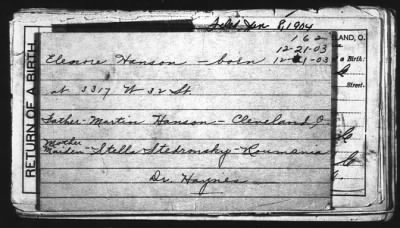 Filed Jan 8, 1904
1 6 2
ELAND, O.
12-21-03
a Birth:
Eleanore Hanson - born 12-21-03
Street.
at 3317 W 32 St
Father - Martin Hanson - Cleveland O
Mother
Maiden - Stella Stedronsky - Roumania
Dr. Haynes
RETURN OF A BIRTH